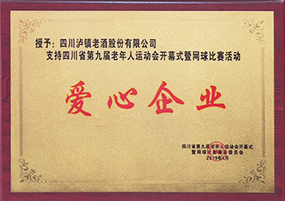 授予：四川泸镇老酒股份有限公司
支持四川省第九届老年人运动会开幕式暨网球比赛活动
爱心企业
四川省第九届老年人运动会开幕式
暨网球比赛筹备委员会